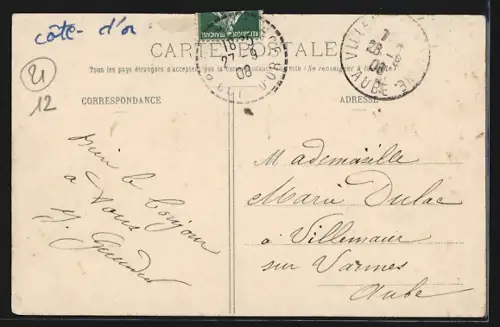 côte-d'or
21
12
CARTE POSTALE
Tous les pays étrangers n'acceptent pas la correspondance au recto. (Se renseigner à la Poste)
CORRESPONDANCE
ADRESSE
18
27-9
08
CÔTE D'OR
VILLE
08
AUBE
Bien le bonjour
à Vous
Mademoiselle
Marie Dulac
à Villemaur
sur Vannes
Aube